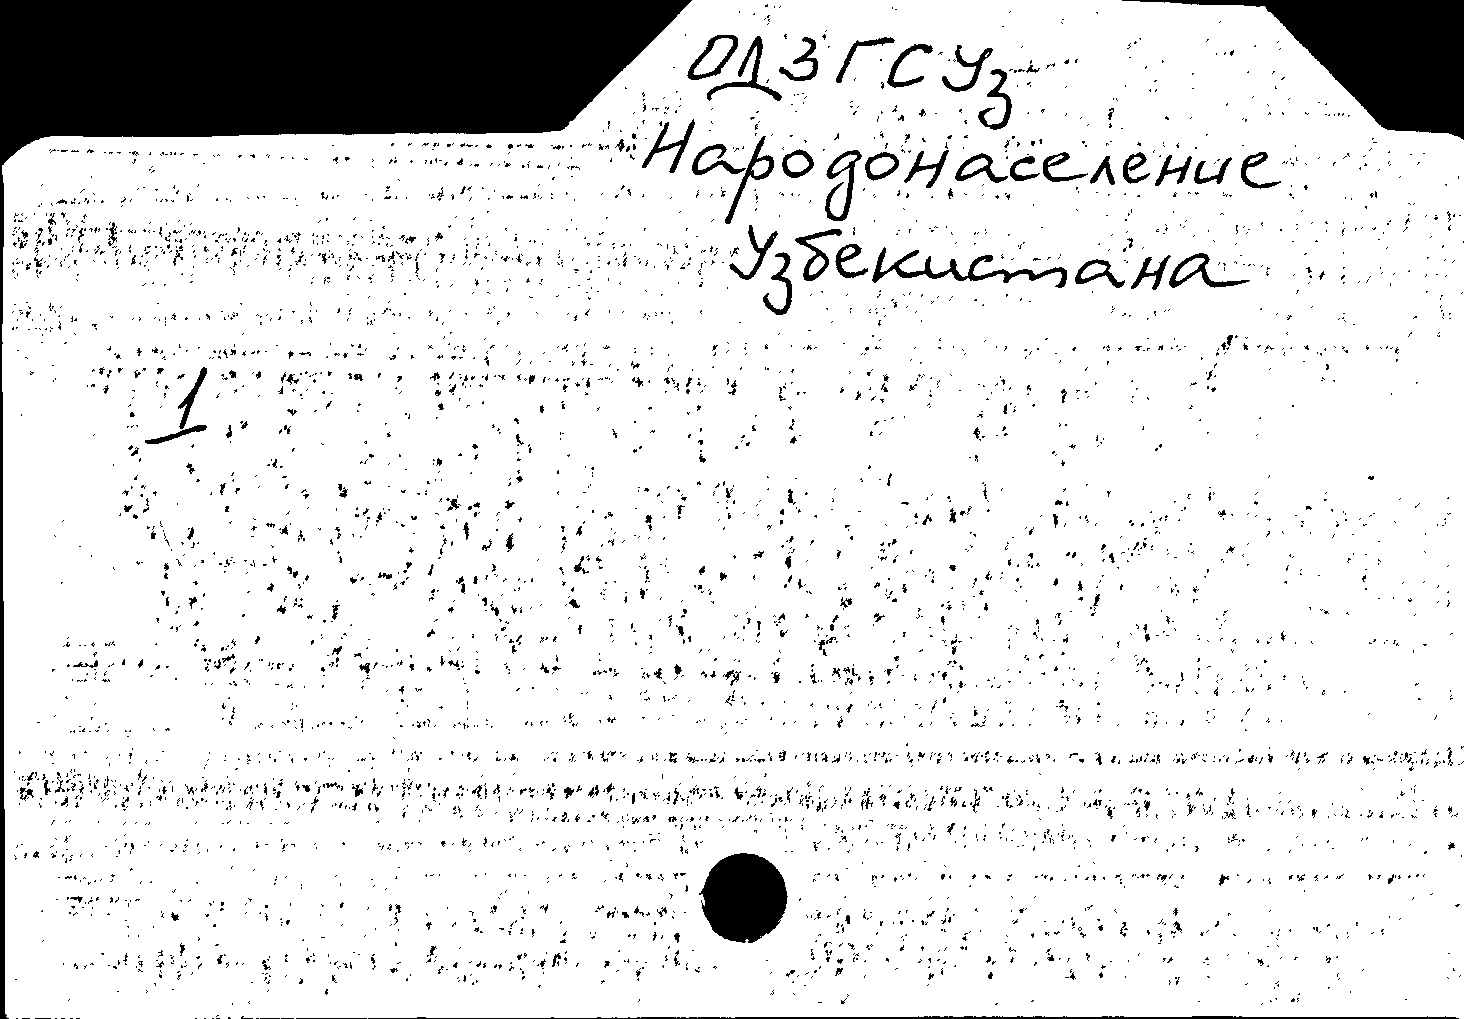 ОЛЗГСУз
Народонаселение
Узбекистана
1